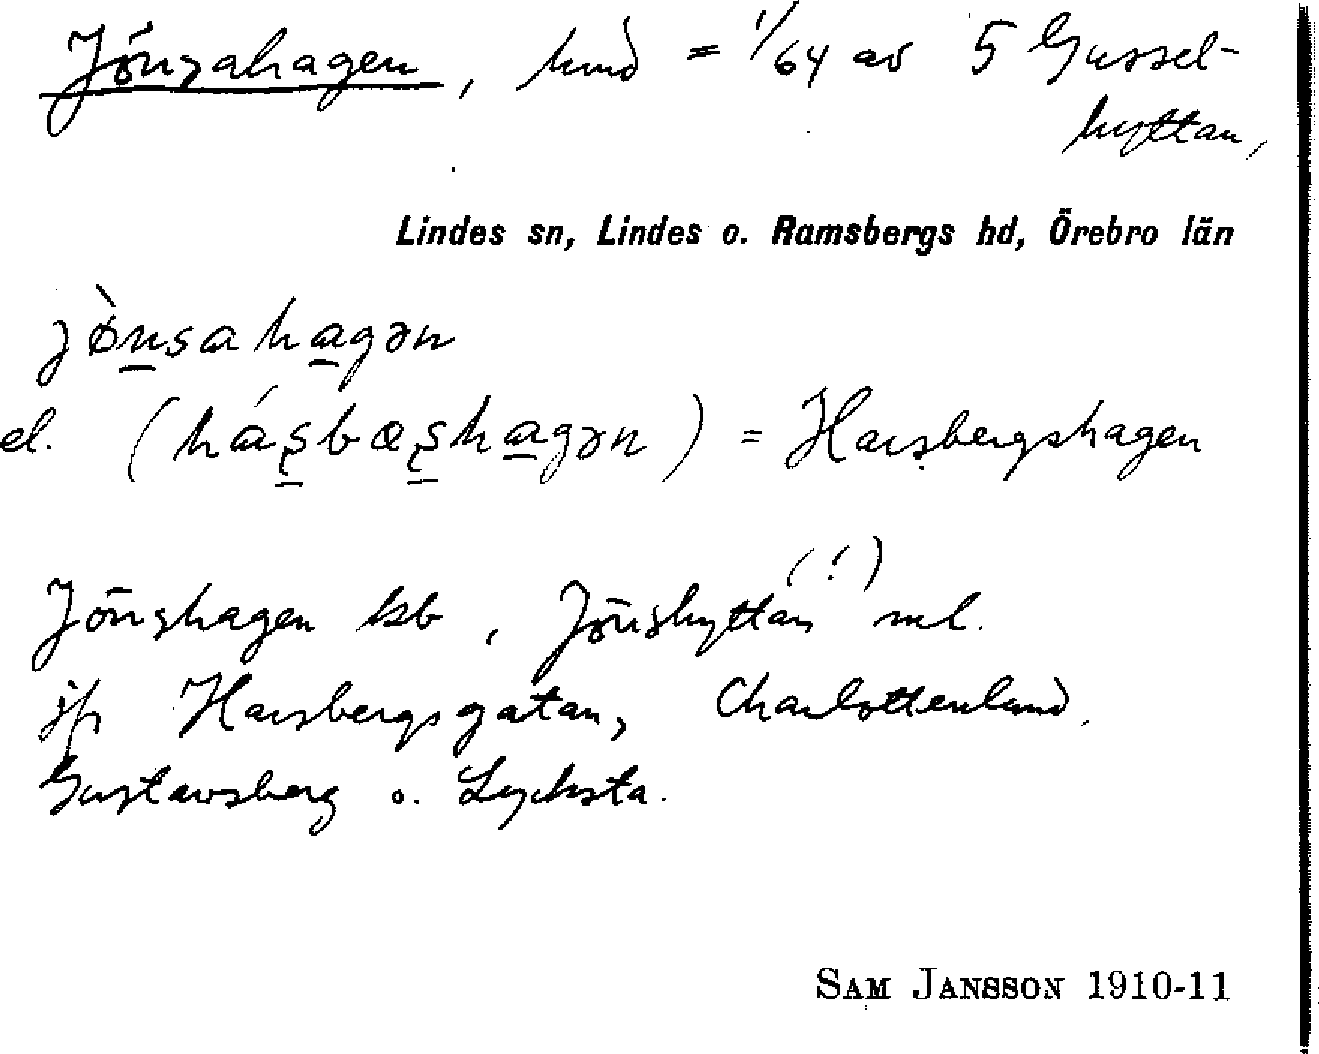 Jönsahagen, hmd = 1/64 av 5 Gussel-
hyttan,
Lindes sn, Lindes o. Ramsbergs hd, Örebro län
jø̀nsahagən
el. (háʂbæʂhagən) = Harsbergshagen
(!)
Jönshagen kb, Jönshyttan ml.
jfr Harsbergsgatan, Charlottenlund,
Gustavsberg o. Lychsta.
SAM JANSSON 1910-11